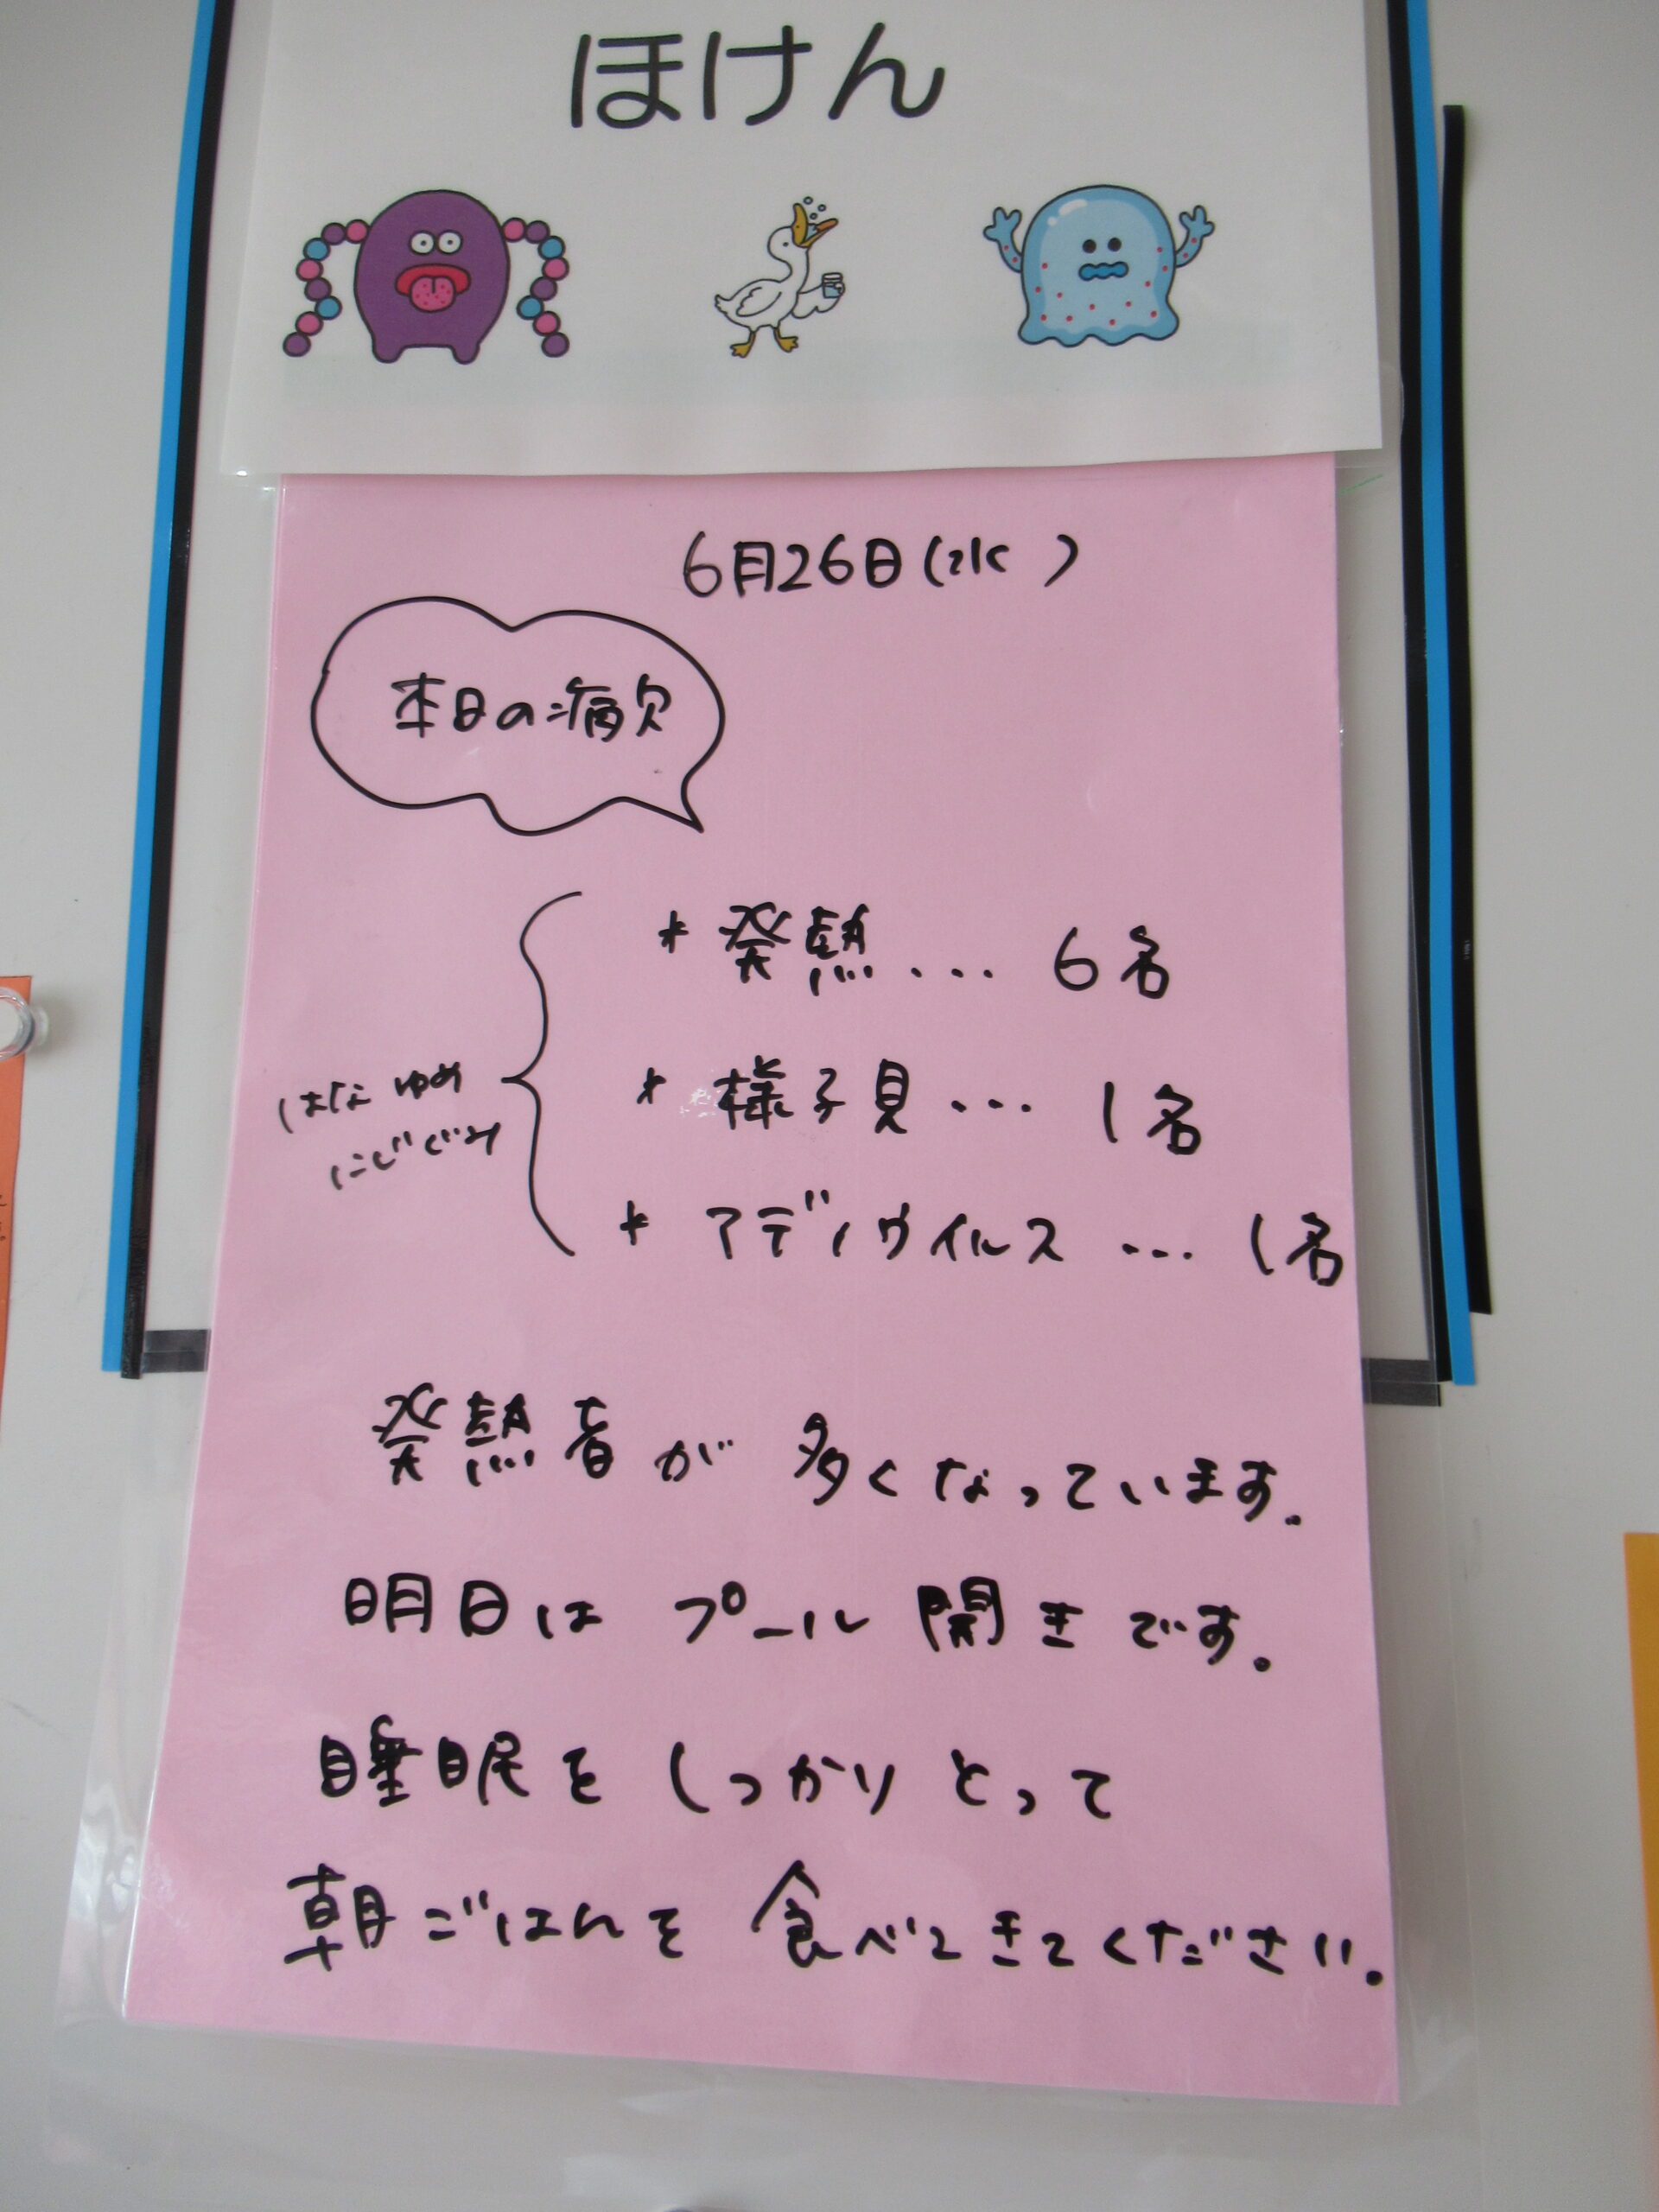 ほけん
6月26日(水 )
本日の病欠
* 発熱... 6名
はな ゆめ
にじぐみ
* 様子見... 1名
* アデノウイルス ... 1名
発熱者が 多くなっています.
明日は プール 開きです.
睡眠を しっかり とって
朝ごはんを 食べてきてください.